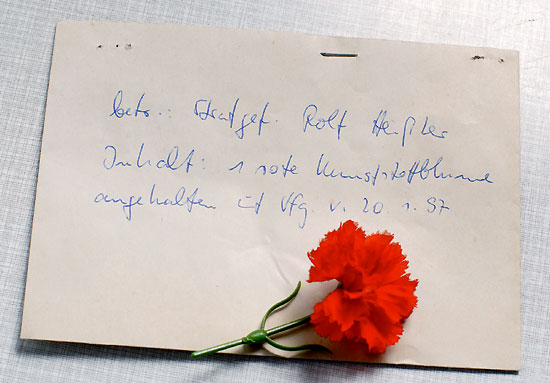 betr.: Strafgef. Rolf Heißler
Inhalt: 1 rote Kunststoffblume
angehalten lt Vfg. v. 20.1.97